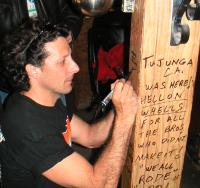 TUJUNGA
CA.
WAS HERE!
HELL ON
WHEELS
FOR ALL
THE BROS
WHO DIDN'T
MAKE IT
"WE ALL
RODE